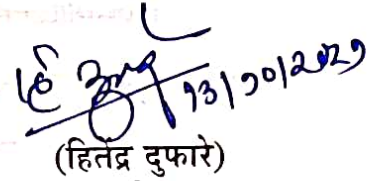 १३/१०/२०२१
(हितेंद्र दुफारे)